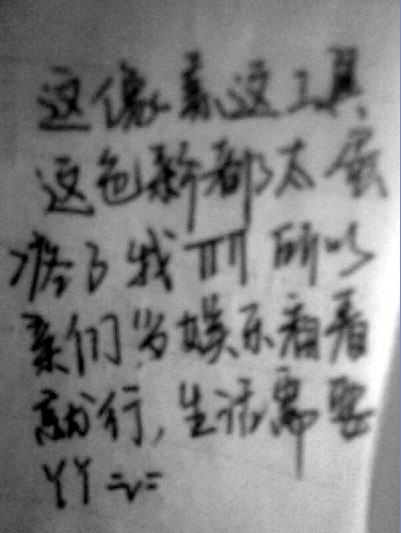 这像素这工具
这色彩都太蛋
疼了我 TTT 所以
亲们当娱乐看看
就行,生活需要
YY =v=